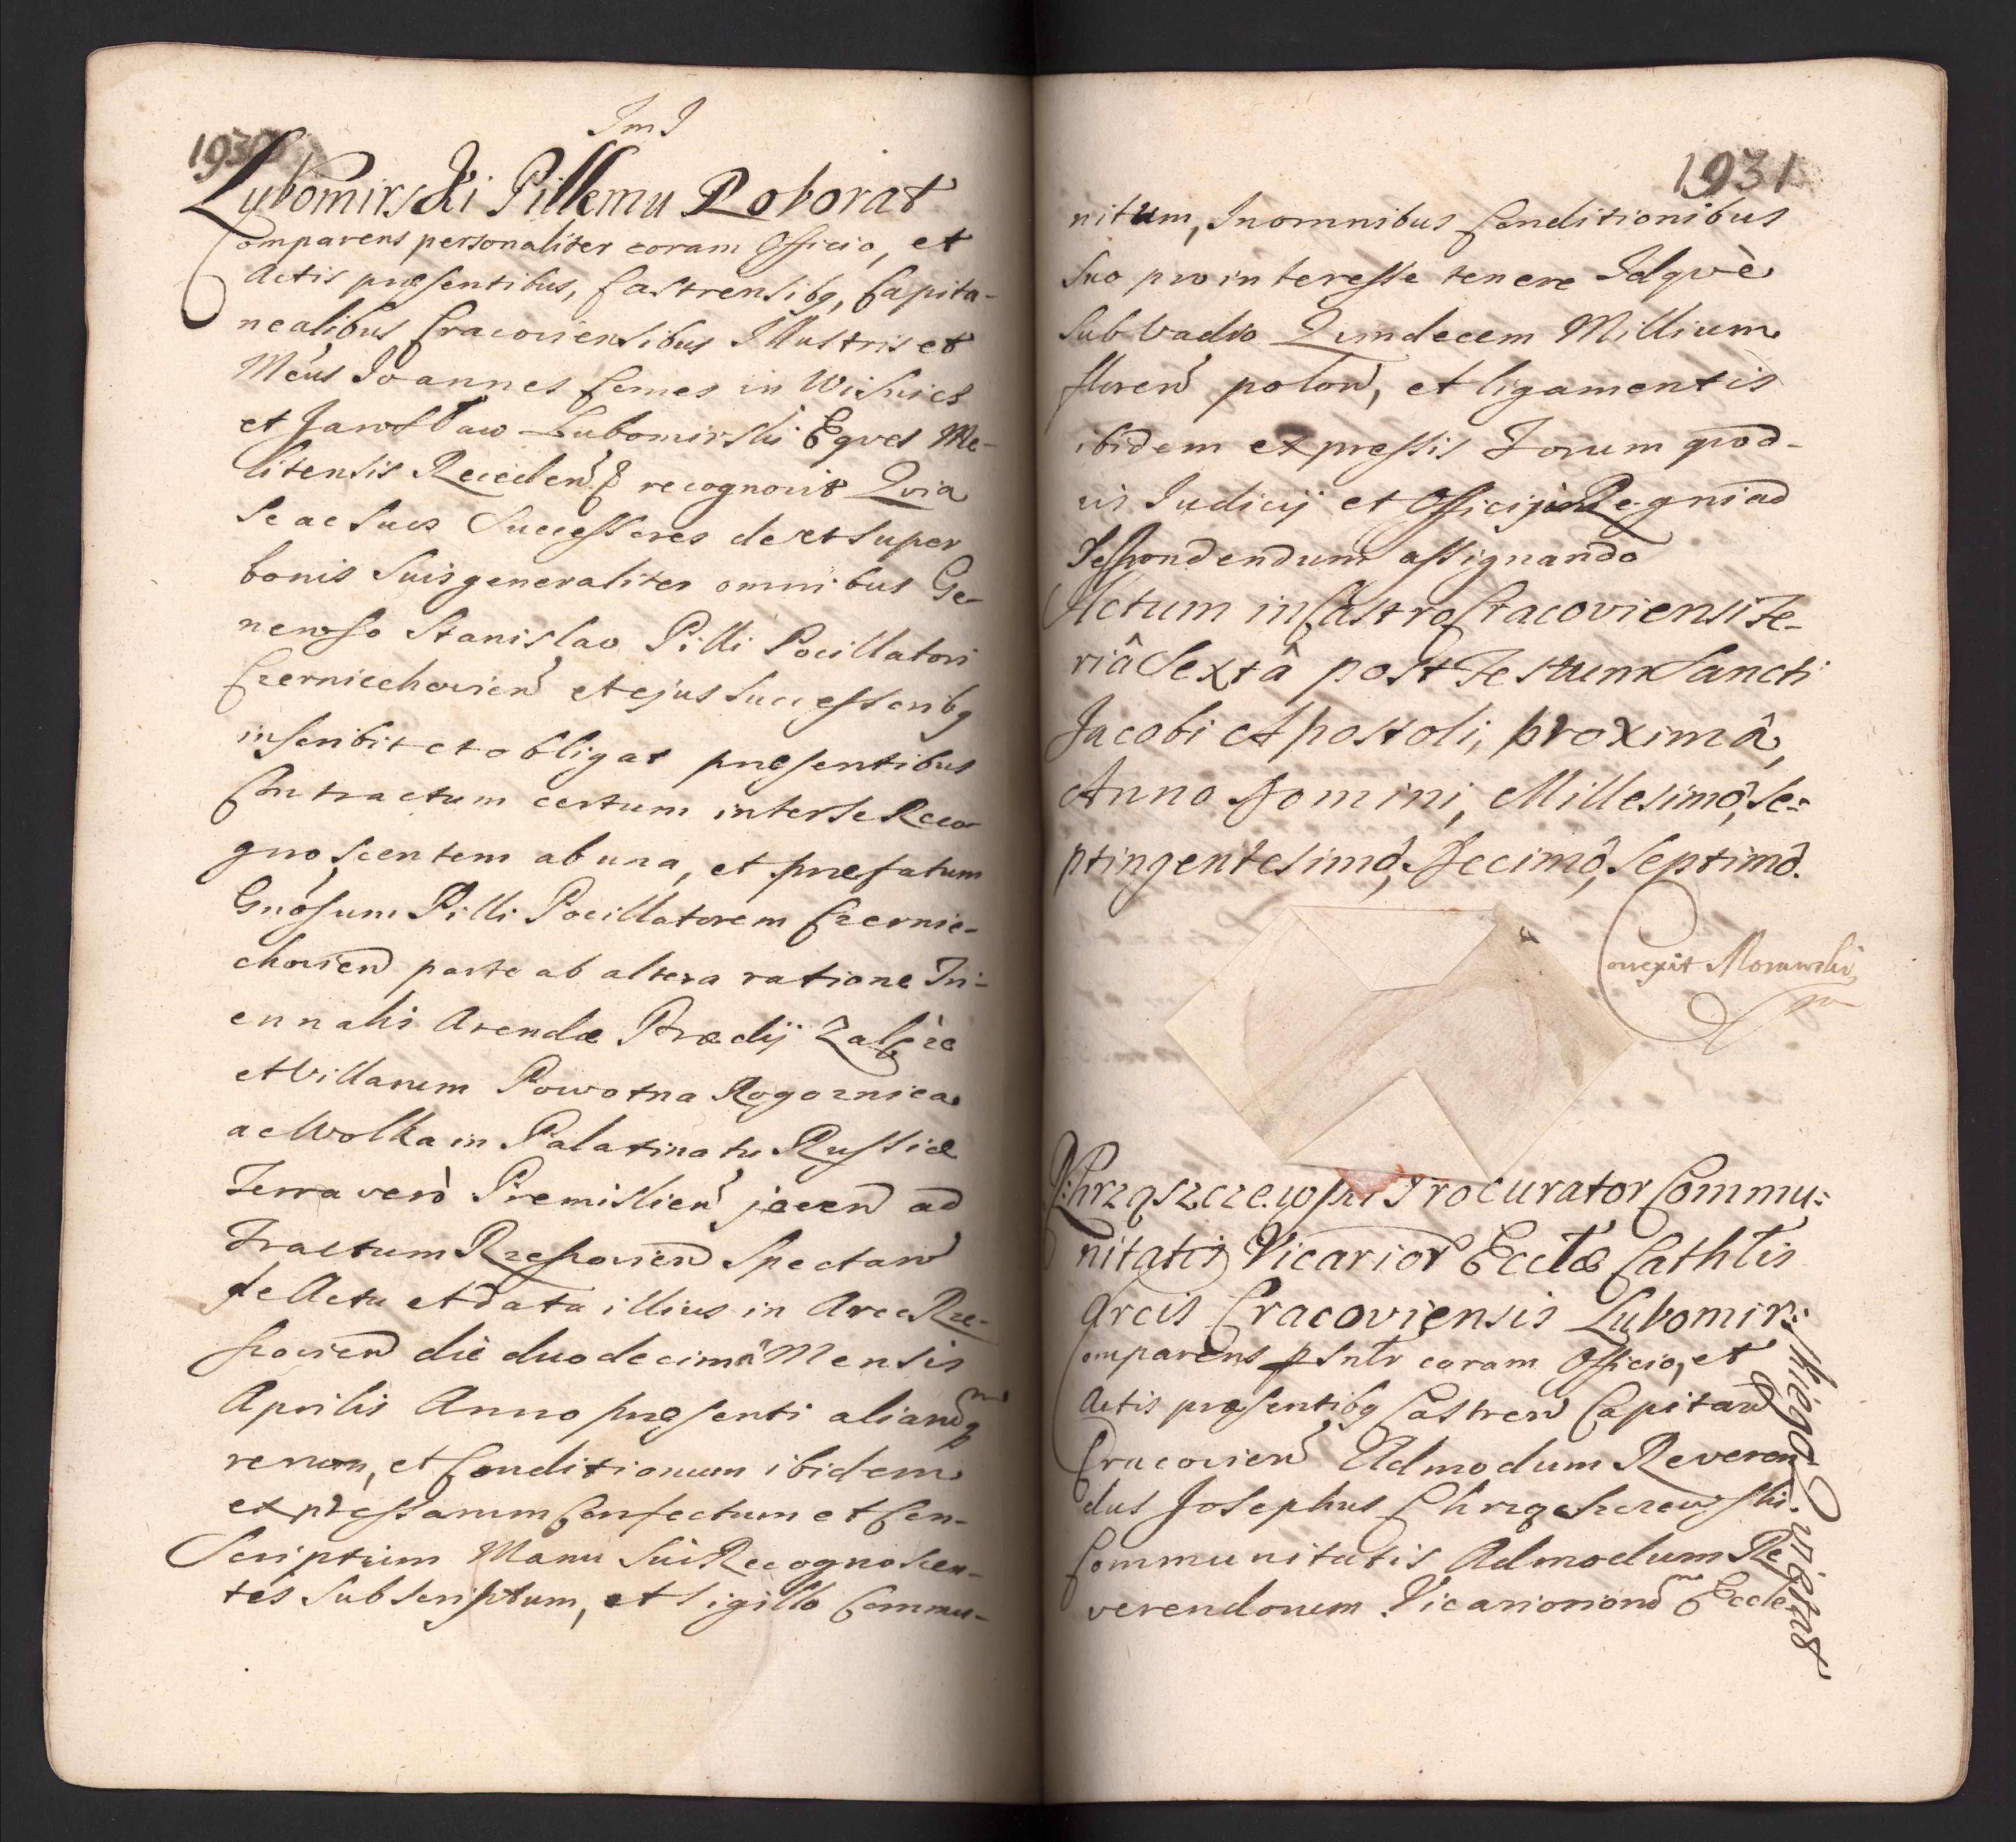 1930
JmJ
Lubomirski Pillemu Roborat
Comparens personaliter coram Officio, et
Actis præsentibus, Castrensibq, Capita-
nealibus Cracoviensibus Illustris et
Mcus Joannes Comes in Wisnicz
et Jarosław Lubomirski Eques Me-
litensis Reciden recognovit Quia
Se ac Suos Successores de et super
bonis Suis generaliter omnibus Ge-
neroso Stanislao Pilli Pocillatori
Czerniechovien et ejus successoribq
inscribit et obligat præsentibus
Contractum certum inter se Reco-
gnoscentem ab una, et præfatum
Gnosum Pilli Pocillatorem Czernie-
chovien parte ab altera ratione Tri-
ennalis Arendæ Prædij Zalęże
et Villarum Powotna Rogoznica
ac Wolka in Palatinatu Russiæ
Terra verò Premislien jacen ad
Tractum Rzeszovien Spectan
de Actu et data illius in Arce Rze-
szovien die duodecimâ Mensis
Aprilis Anno præsenti aliarumq
rerum, et Conditionum ibidem
expressarum Confectum et Con-
Scriptum Manu Sui Recognoscen-
tes Subscriptum, et Sigillo Commu-
1931
nitum, In omnibus Conditionibus
Suo pro interesse tenere Idquè
Sub Vadio Quindecem Millium
floren polon, et ligamentis
ibidem expressis Forum quod-
vis Iudicij et Officij in Regni ad
Respondendum assignando
Actum in Castro Cracoviensi Fe-
riâ Sextâ post Festum Sancti
Jacobi Apostoli, proximâ,
Anno Domini, Millesimô, Se=
ptingentesimô, Decimô, Septimô.
Correxit Morawski
mp
R: Chrząszczewski Procurator Commu=
nitatis Vicarior Ecclæ Cathlis
Arcis Cracoviensis Lubomir=
skiego Quietat
Comparens psnlr coram Officio, et
Actis præsentibq Castren Capitan
Cracovien Admodum Reveren
dus Josephus Chrząszczewski
Communitatis Admodum Re
verendorum Vicariorum Eccle